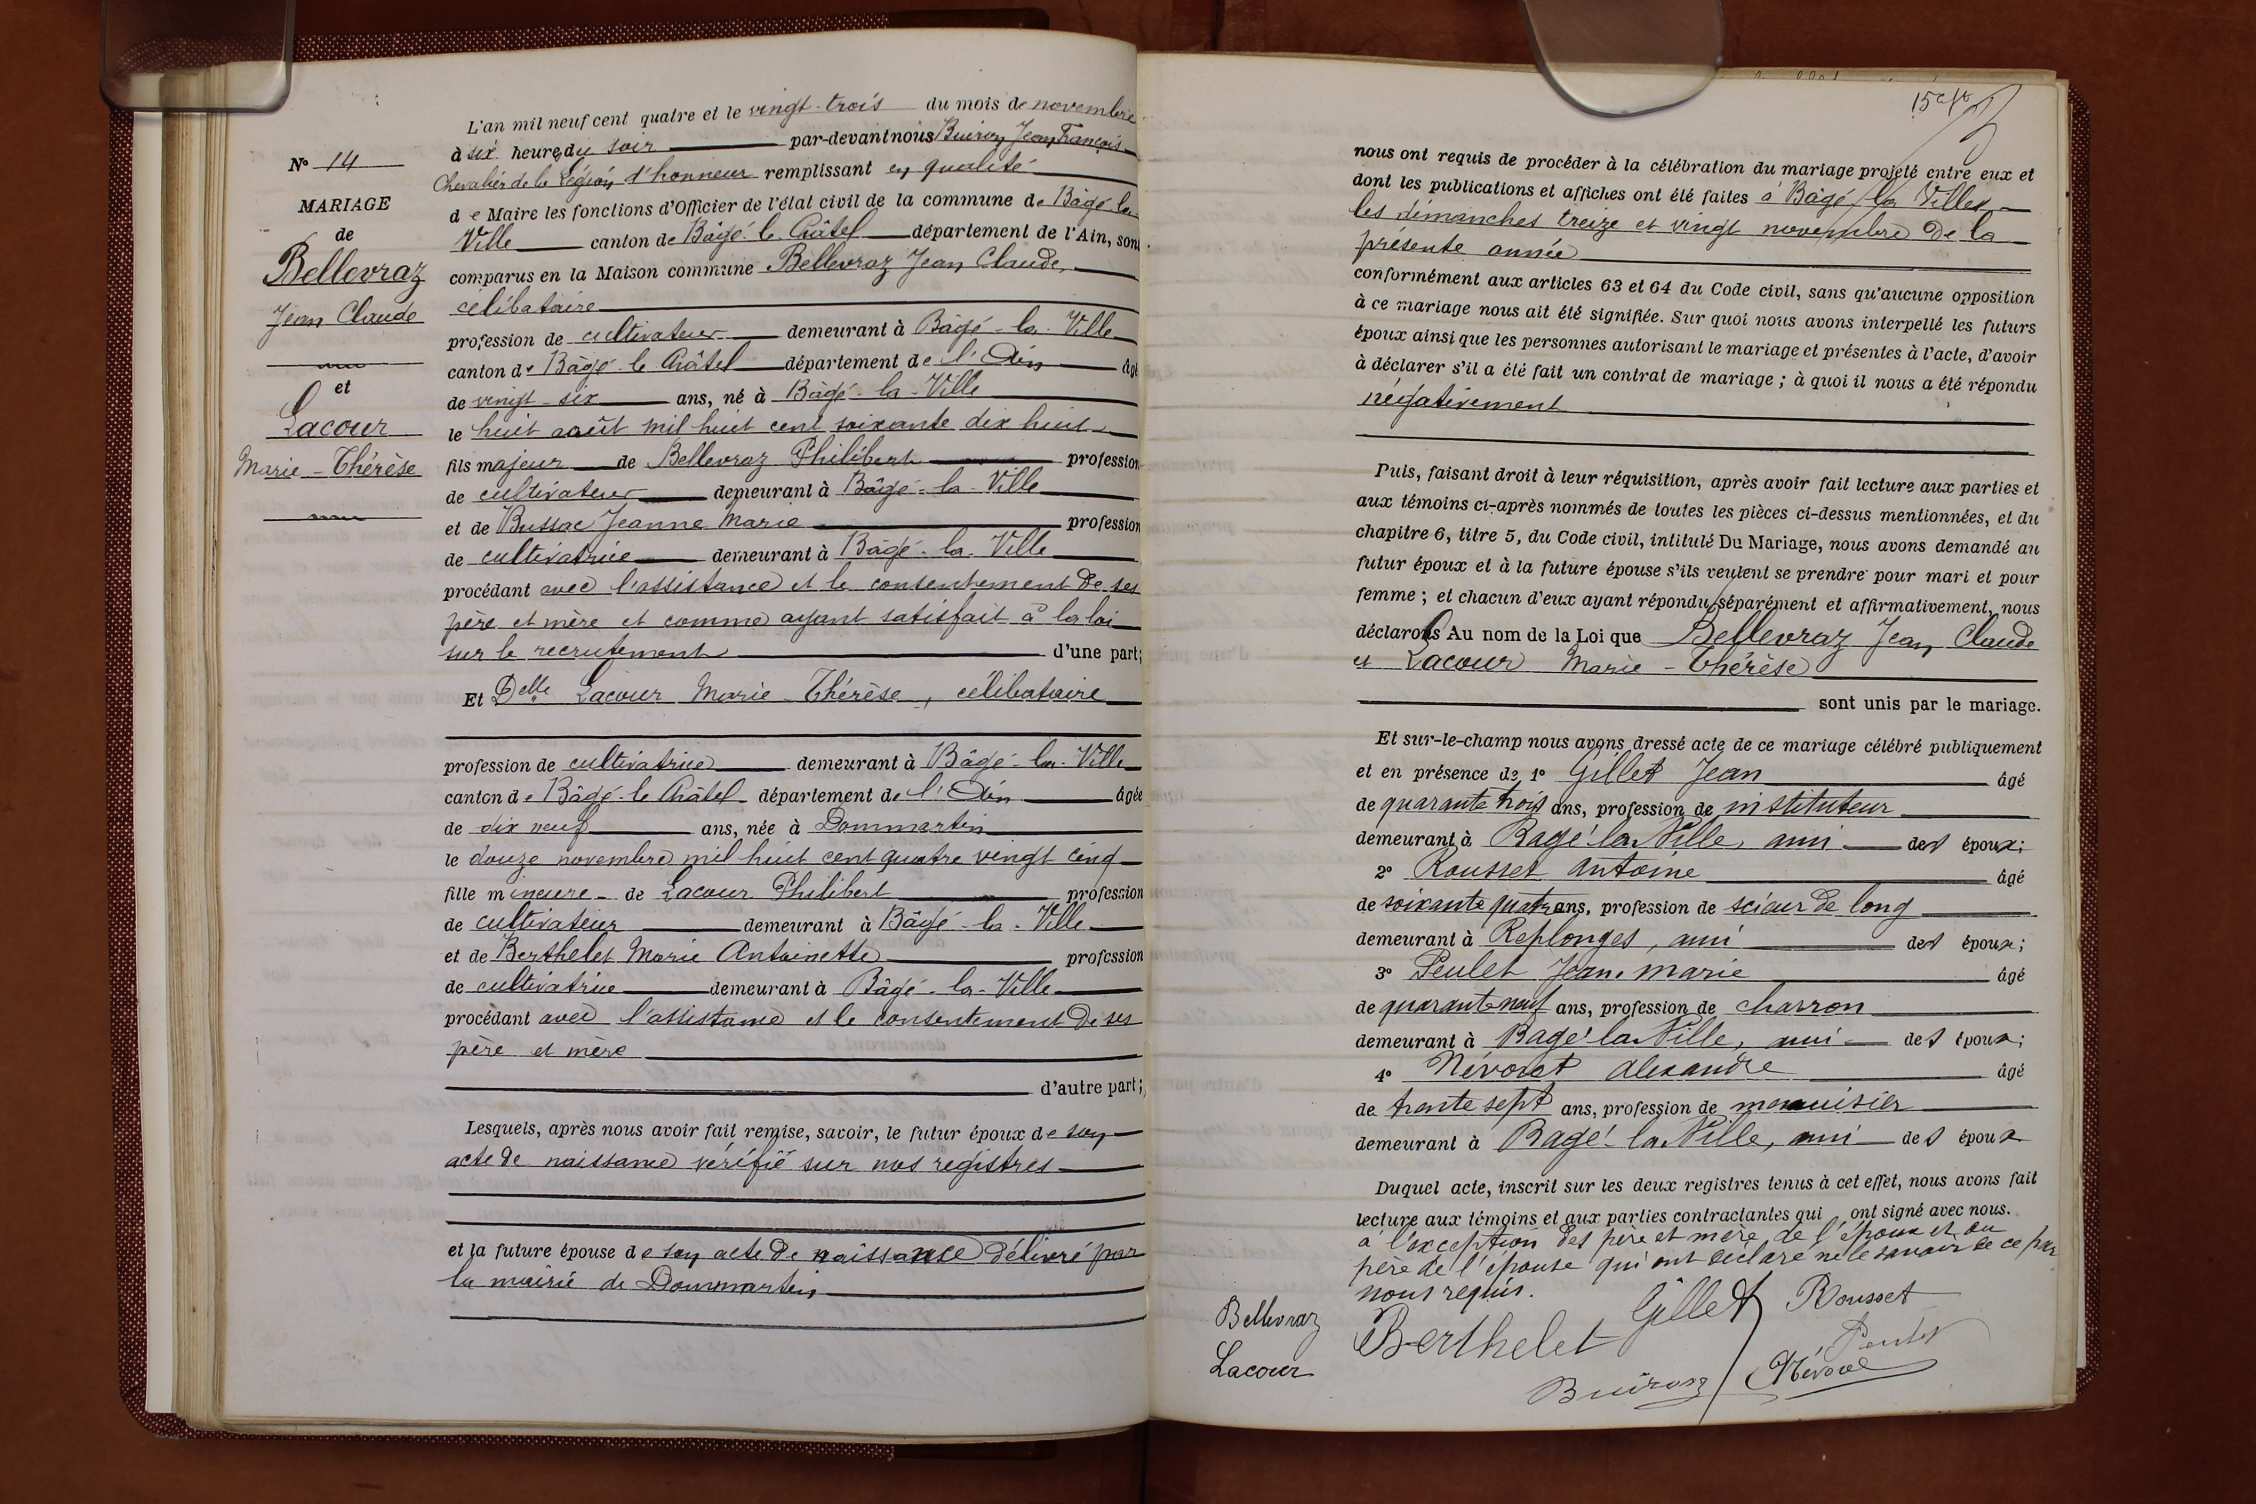 N° 14
MARIAGE
de
Bellevraz
Jean Claude
et
Lacour
Marie-Thérèse
L'an mil neuf cent quatre et le vingt-trois du mois de novembre
à six heures du soir par-devant nous Buiron Jean François
Chevalier de la Légion d'honneur remplissant en qualité
de Maire les fonctions d'Officier de l'état civil de la commune de Bâgé-la
Ville canton de Bâgé-le-Châtel département de l'Ain, sont
comparus en la Maison commune Bellevraz Jean Claude,
célibataire
profession de cultivateur demeurant à Bâgé-la-Ville
canton de Bâgé-le-Châtel département de l'Ain âgé
de vingt-six ans, né à Bâgé-la-Ville
le huit août mil huit cent soixante dix huit
fils majeur de Bellevraz Philibert profession
de cultivateur demeurant à Bâgé-la-Ville
et de Bussac Jeanne Marie profession
de cultivatrice demeurant à Bâgé-la-Ville
procédant avec l'assistance et le consentement de ses
père et mère et comme ayant satisfait à la loi
sur le recrutement d'une part;
Et Delle Lacour Marie-Thérèse, célibataire
profession de cultivatrice demeurant à Bâgé-la-Ville
canton de Bâgé-le-Châtel département de l'Ain âgée
de dix neuf ans, née à Dommartin
le douze novembre mil huit cent quatre vingt cinq
fille mineure de Lacour Philibert profession
de cultivateur demeurant à Bâgé-la-Ville
et de Berthelet Marie Antoinette profession
de cultivatrice demeurant à Bâgé-la-Ville
procédant avec l'assistance et le consentement de ses
père et mère
d'autre part;
Lesquels, après nous avoir fait remise, savoir, le futur époux de son
acte de naissance vérifié sur nos registres
et la future épouse de son acte de naissance délivré par
la mairie de Dommartin
15e
nous ont requis de procéder à la célébration du mariage projeté entre eux et
dont les publications et affiches ont été faites à Bâgé-la-Ville
les dimanches treize et vingt novembre de la
présente année
conformément aux articles 63 et 64 du Code civil, sans qu'aucune opposition
à ce mariage nous ait été signifiée. Sur quoi nous avons interpellé les futurs
époux ainsi que les personnes autorisant le mariage et présentes à l'acte, d'avoir
à déclarer s'il a été fait un contrat de mariage; à quoi il nous a été répondu
négativement
Puis, faisant droit à leur réquisition, après avoir fait lecture aux parties et
aux témoins ci-après nommés de toutes les pièces ci-dessus mentionnées, et du
chapitre 6, titre 5, du Code civil, intitulé Du Mariage, nous avons demandé au
futur époux et à la future épouse s'ils veulent se prendre pour mari et pour
femme; et chacun d'eux ayant répondu séparément et affirmativement, nous
déclarons Au nom de la Loi que Bellevraz Jean Claude
et Lacour Marie-Thérèse
sont unis par le mariage.
Et sur-le-champ nous avons dressé acte de ce mariage célébré publiquement
et en présence de 1° Gillet Jean âgé
de quarante trois ans, profession de instituteur
demeurant à Bagé-la-Ville, ami des époux;
2° Rousset Antoine âgé
de soixante quatre ans, profession de scieur de long
demeurant à Replonges, ami des époux;
3° Peulet Jean Marie âgé
de quarante neuf ans, profession de charron
demeurant à Bagé la Ville, ami des époux;
4° Névoret Alexandre âgé
de trente sept ans, profession de menuisier
demeurant à Bagé-la-Ville, ami des époux
Duquel acte, inscrit sur les deux registres tenus à cet effet, nous avons fait
lecture aux témoins et aux parties contractantes qui ont signé avec nous.
à l'exception des père et mère de l'époux et du
père de l'épouse qui ont déclaré ne le savoir de ce par
nous requis.
Bellevraz Berthelet Gillet Rousset
Lacour Peulet
Buiron Névoret